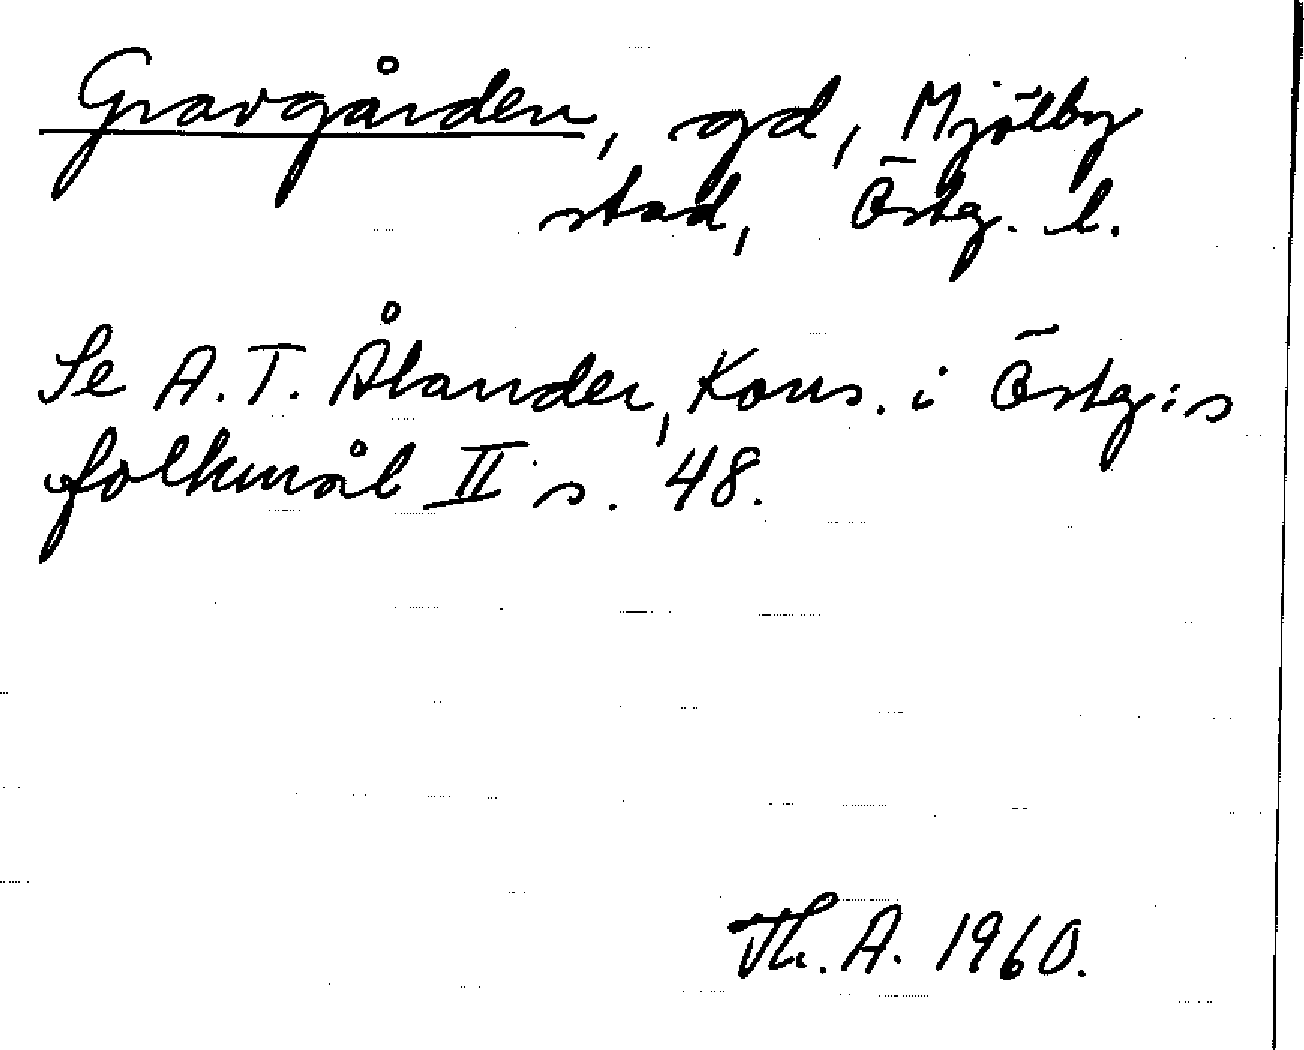 Gravgården, gd, Mjölby
stad, Östg. l.
Se A. T. Ålander, Kons. i Östg:s
folkmål II s. 48.
Th. A. 1960.